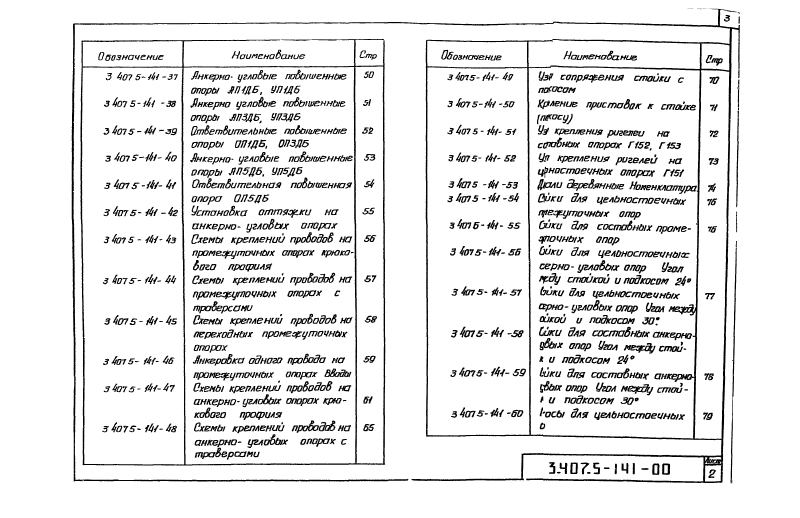 3
Обозначение Наименование Стр
3 407 5-141-37 Анкерно-угловые повышенные 50
опоры АП1ДБ, УП1ДБ
3 407 5-141-38 Анкерно угловые повышенные 51
опоры АП3ДБ, УП3ДБ
3 407 5-141-39 Ответвительные повышенные 52
опоры ОП1ДБ, ОП3ДБ
3 407 5-141-40 Анкерно-угловые повышенные 53
опоры АП5ДБ, УП5ДБ
3 407 5-141-41 Ответвительная повышенная 54
опора ОП5ДБ
3 407 5-141-42 Установка оттяжки на 55
анкерно-угловых опорах
3 407 5-141-43 Схемы креплений проводов на 56
промежуточных опорах крюко-
вого профиля
3 407 5-141-44 Схемы креплений проводов на 57
промежуточных опорах с
траверсами
3 407 5-141-45 Схемы креплений проводов на 58
переходных промежуточных
опорах
3 407 5-141-46 Анкеровка одного провода на 59
промежуточных опорах Вводы
3 407 5-141-47 Схемы креплений проводов на
анкерно-угловых опорах крю- 61
кового профиля
3 407 5-141-48 Схемы креплений проводов на 65
анкерно-угловых опорах с
траверсами
Обозначение Наименование Стр
3 407 5-141-49 Узл сопряжения стойки с 70
подкосом
3 407 5-141-50 Крпление приставок к стойке 71
3 407 5-141-51 Узл крепления ригелей на 72
составных опорах Г152, Г153
3 407 5-141-52 Узл крепления ригелей на 73
опорах Г151
3 407 5-141-53 деревянные Номенклатура 74
3 407 5-141-54 для цельностоечных 75
опор
3 407 5-141-55 для составных проме- 76
опор
3 407 5-141-56 для цельностоечных
угловых опор Угол
стойкой и подкосом 24°
3 407 5-141-57 для цельностоечных 77
угловых опор Угол между
и подкосом 30°
3 407 5-141-58 для составных анкерно-
опор Угол между стой-
и подкосом 24°
3 407 5-141-59 для составных анкерно- 78
опор Угол между стой-
и подкосом 30°
3 407 5-141-60 для цельностоечных 79
3.407.5-141-00
Лист
2